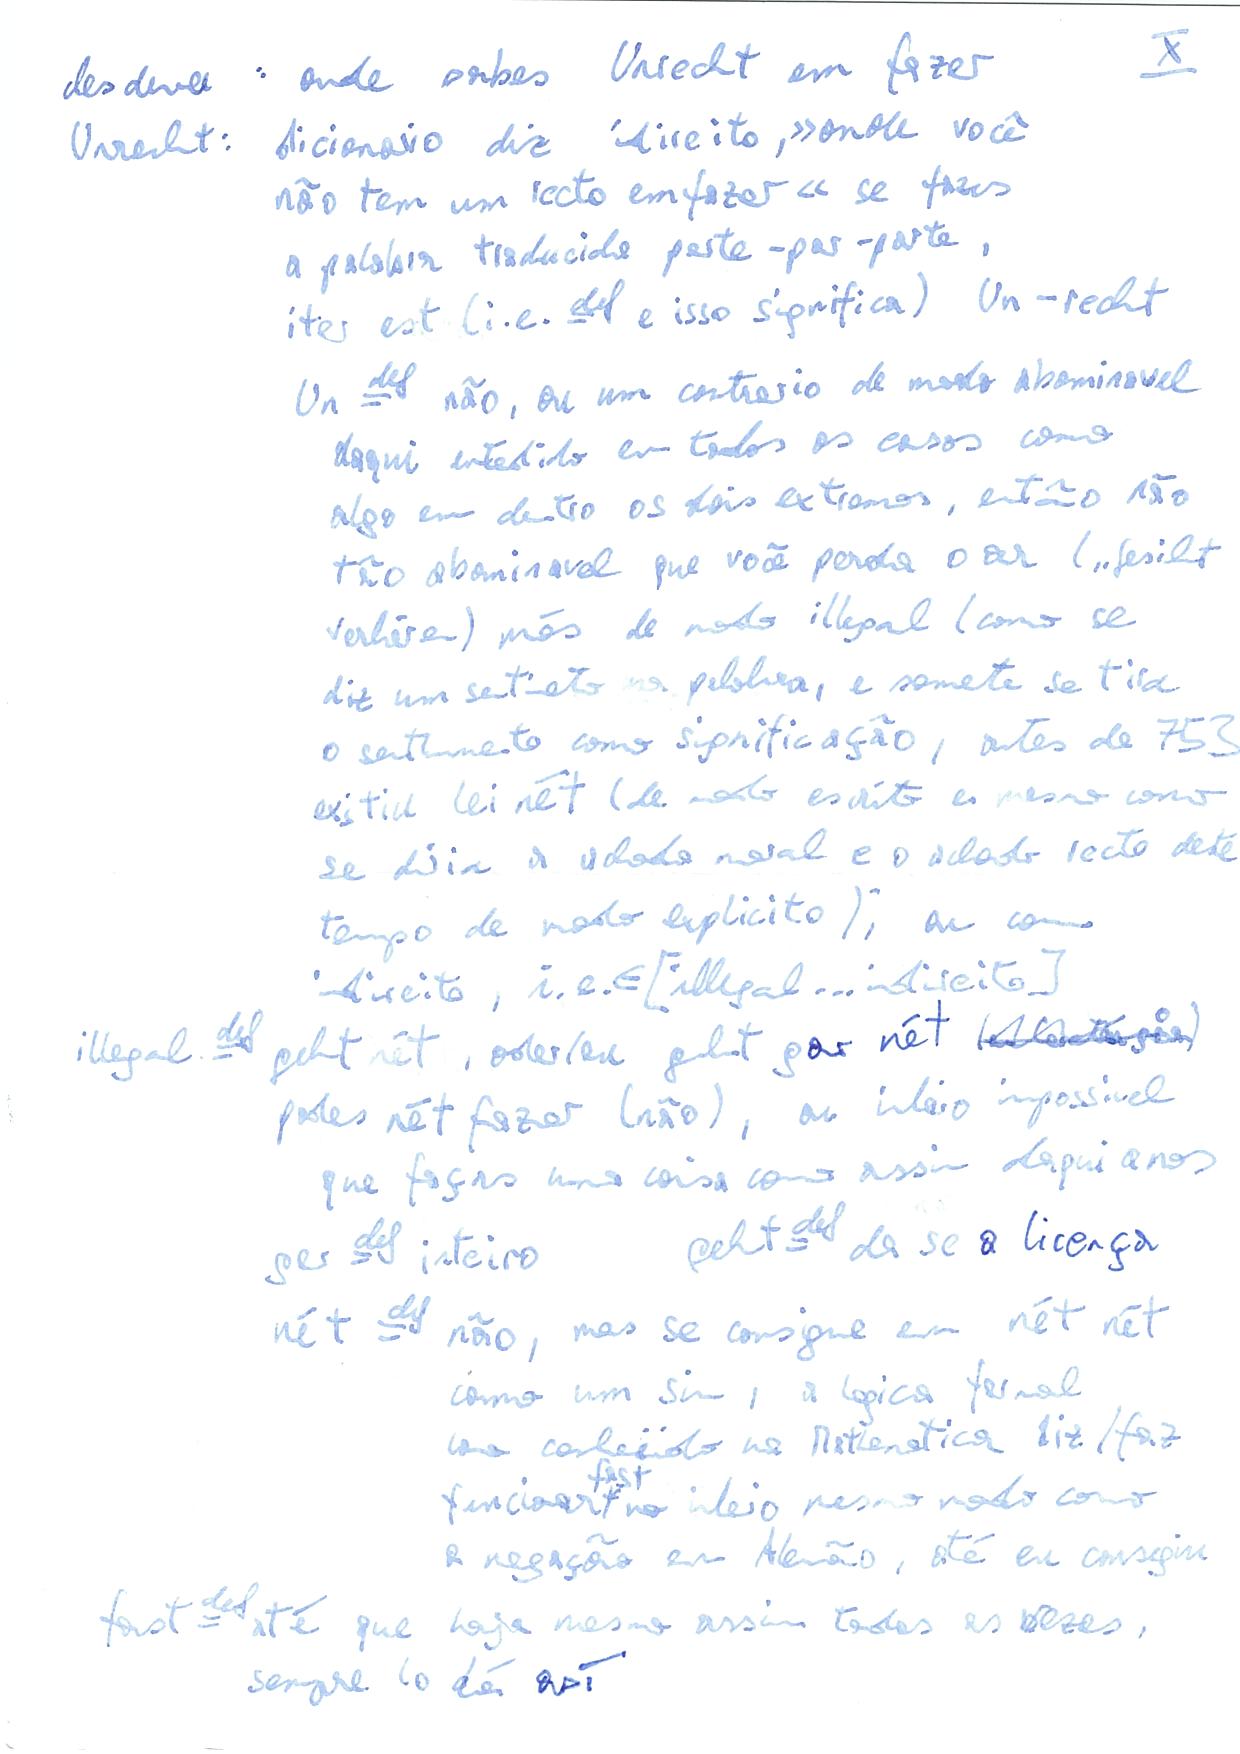 X
desdever : onde sabes Unrecht em fazer
Unrecht: dicionario diz indireito, »onde você
não tem um recto em fazer « se fazes
a palabra traducida parte-por-parte,
iter est (i.e. =def e isso significa) Un-recht
Un =def não, ou um contrario de modo abominavel
daqui entedido em todos os casos como
algo em dentro os dois extremos, então não
tão abominavel que você perda o ar („
) mas de modo illegal (como se
diz um sentimeto na palabra, e somete se tira
o sentimento como significação, antes de 753
existiu lei nét (de modo escrito mesmo como
se diria a moral e o recto deste
tempo de modo explicito); ou com
indireito, i.e. ∈ [illegal ... indireito]
illegal =def geht nét, oder/ou geht gar nét
podes nét fazer (não), ou inteio impossivel
que faças uma coisa como assim daqui a nos
gar =def inteiro geht =def da se a licença
nét =def não, mas se consigue em nét nét
como um sim, a logica formal
como conhecido na Matematica diz/faz
funcionar fast no inteio mesmo modo como
a negação em Alemão, até eu consigiu
fast =def até que haja mesmo assim todas as vezes,
sempre lo dá así